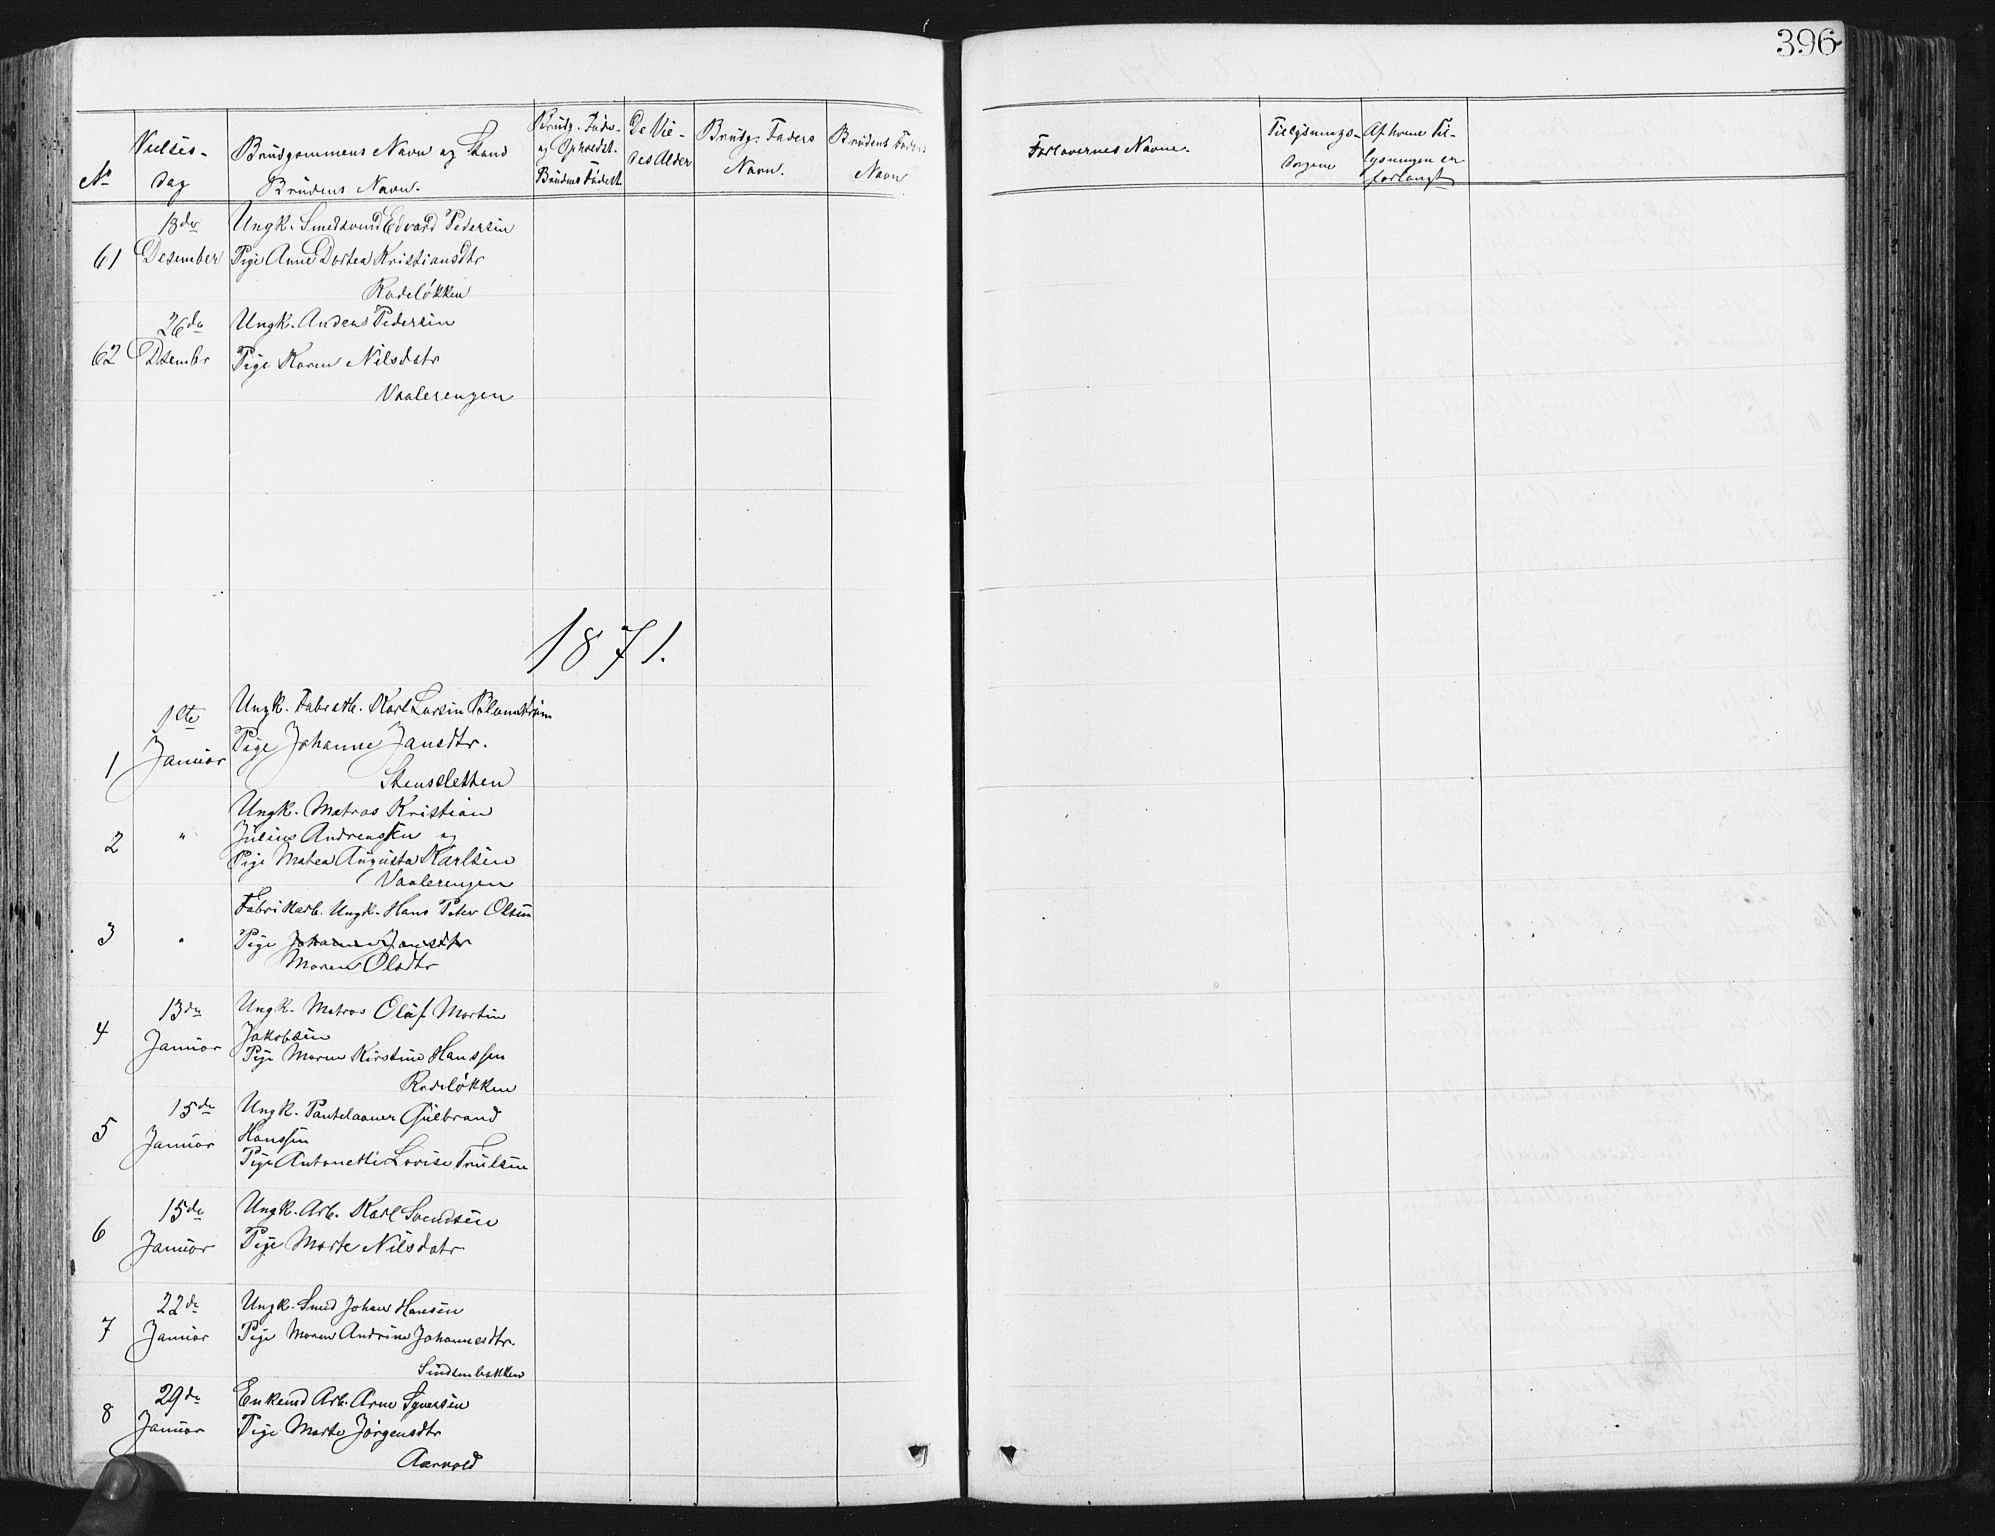 396
No
Vielses-
dag
Brudgommens Navn og Stand
Brudens Navn.
Brudg. Føde-
og Opholdst.
Brudens Fødest.
De Vie-
des Alder
Brudg. Faders
Navn.
Brudens Faders
Navn
Forlovernes Navne.
Tillysnings-
dagene
Af hvem Til-
lysningen er
forlangt
61
13de
Desember
Ungk. Smedsvend Edvard Pedersen
Pige Anne Dortea Kristiansdtr
Rodeløkken
62
26de
Dsembr
Ungk. Anders Pedersen
Pige Karen Nilsdatr
Vaalerengen
1871.
1
1ste
Januar
Ungk. Fabrarb. Karl Larsen Blomstrøm
Pige Johanne Jansdtr.
Stensletten
2
"
Ungk. Matros Kristian
Julius Andreassen og
Pige Matea Augusta Karlsen
Vaalerengen
3
"
Fabrikarb. Ungk. Hans Peter Olsen
Pige Johanne Jansdtr
Maren Olsdtr
4
13de
Januar
Ungk. Matros Oluf Martin
Jakobsen
Pige Maren Kirstine Hanssen
Rodeløkken
5
15de
Januar
Ungk. Pantelaaner Gulbrand
Hanssen
Pige Antonette Lovise Trulsen
6
15de
Januar
Ungk. Arb. Karl Svendsen
Pige Marte Nilsdatr
7
22de
Januar
Ungk. Smed Johan Hansen
Pige Maren Andrine Johannesdtr.
8
29de
Januar
Enkemd Arb. Arne Syversen
Pige Marte Jørgensdtr
Aarvold